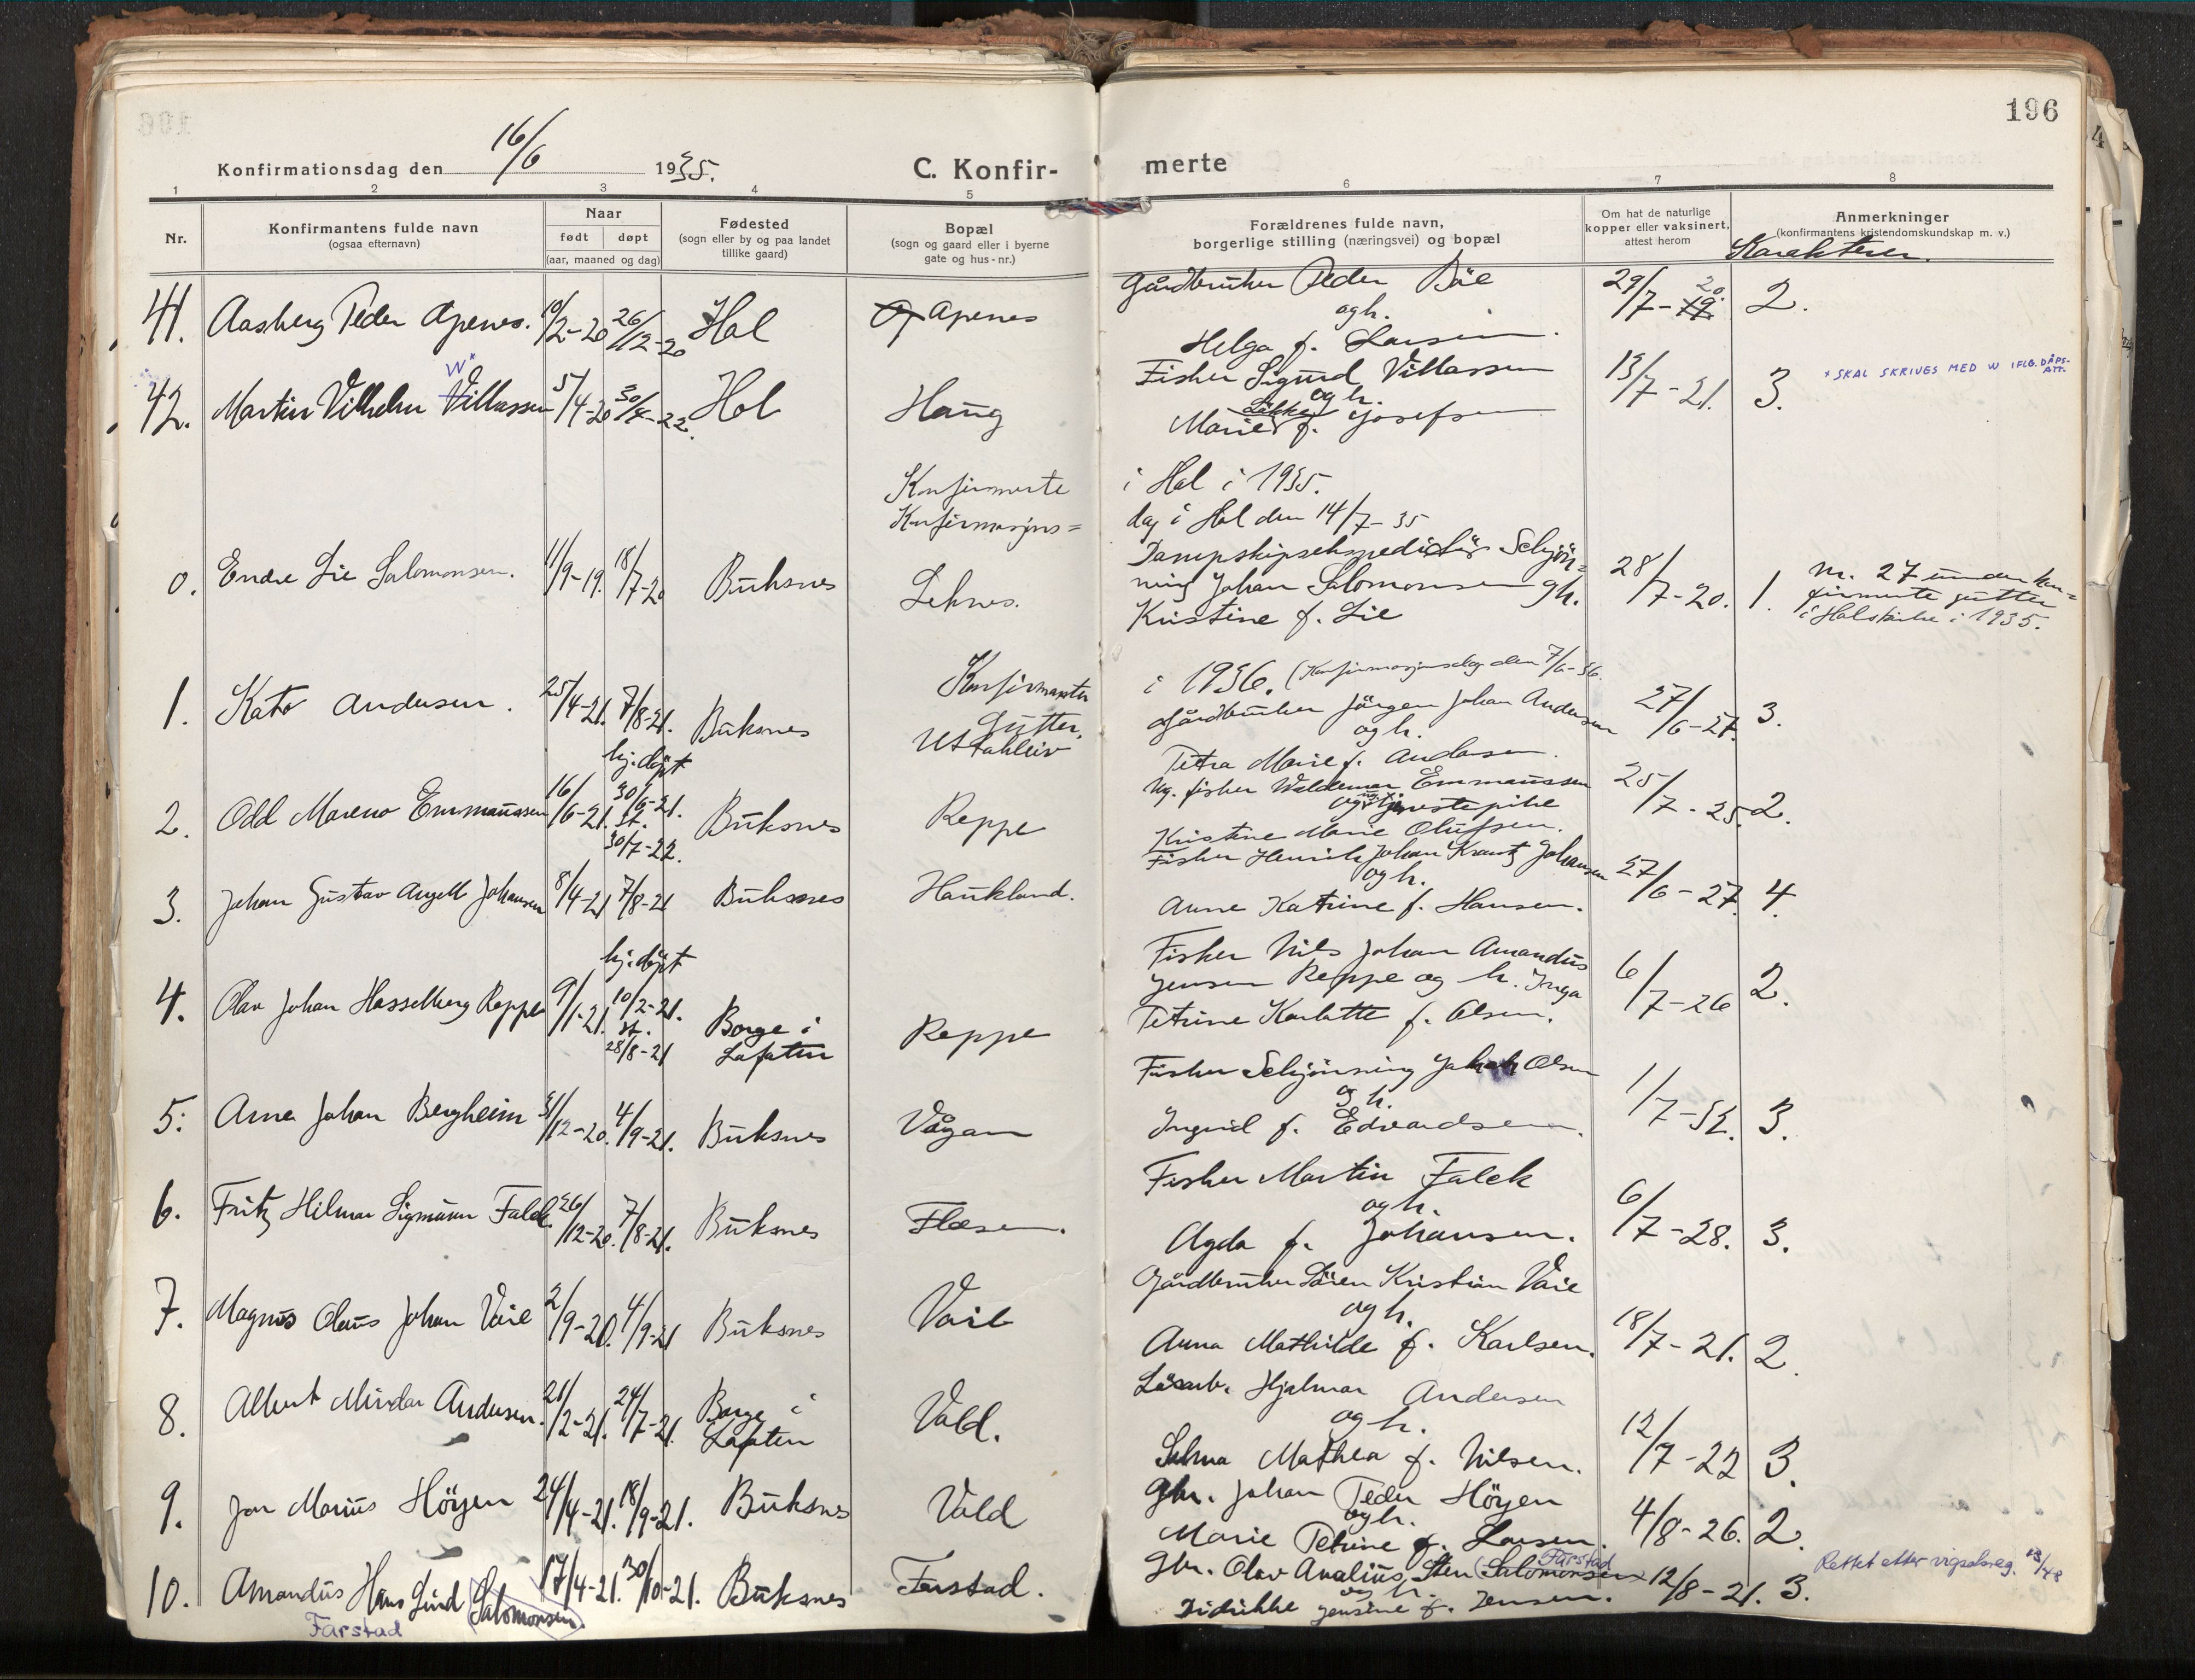 196
Konfirmationsdag den 16/6 1935.
C. Konfirmerte
1 2 3 4 5 6 7 8
Nr.
Konfirmantens fulde navn
(ogsaa efternavn)
Naar
født døpt
(aar, maaned og dag)
Fødested
(sogn eller by og paa landet
tillike gaard)
Bopæl
(sogn og gaard eller i byerne
gate og hus-nr.)
Forældrenes fulde navn,
borgerlige stilling (næringsvei) og bopæl
Om hat de naturlige
kopper eller vaksinert,
attest herom
Anmerkninger
(konfirmantens kristendomskundskap m. v.)
Karakterer.
41. Aasberg Peder Apenes. 10/2-20 26/12-20 Hol Apenes
Gårdbruker Peder Böe
og h.
Helga f. Larsen.
29/7-20. 2.
42. Martin Vilhelm Villassen 5/4-20 30/4-22. Hol Haug
W*
Fisker Sigurd Villassen
og h.
Marie Likke f. Josefsen
13/7-21. 3.
* SKAL SKRIVES MED W IFLG. DÅPS-
ATT.
Konfirmerte i Hol i 1935.
Konfirmasjons= dag i Hol den 14/7-35
0. Endre Lie Salomonsen. 11/9-19. 18/7-20 Buksnes Leknes.
Dampskipsekspeditör Schjön=
ning Johan Salomonsen og h.
Kristine f. Lie
28/7-20. 1.
Nr. 27 under kon=
firmerte gutter
i Hol kirke i 1935.
Konfirmanter i 1936. (Konfirmasjonsdag den 7/6-36.
Gutter.
1. Kato Andersen. 25/4-21. 7/8-21. Buksnes Uttakleiv
Gårdbruker Jörgen Johan Andersen
og h.
Petra Marie f. Andersen.
27/6-27. 3.
2. Odd Mareno Emmanssen 16/6-21. hj. döpt 30/6-21. st. 30/7-22. Buksnes Reppe
Ug. fisker Waldemar Emmanssen
og tjenestepike
Kristine Marie Olufsen.
25/7-25. 2.
3. Johan Gustav Angell Johansen 8/4-21 7/8-21 Buksnes Haukland.
Fisker Henrik Johan Krantz Johansen
og h.
Anne Katrine f. Hansen.
27/6-27. 4.
4. Olav Johan Hasselberg Reppe 9/1-21. hj. döpt 10/2-21. st. 28/8-21 Borge i Lofoten Reppe
Fisker Nils Johan Amandus
Jensen Reppe og h. Inga
Petrine Karlotte f. Olsen.
6/7-26 2.
5. Arne Johan Bergheim 31/12-20. 4/9-21. Buksnes Vågan
Fisker Schjönning Jakob Olsen
og h.
Ingrid f. Edvardsen.
1/7-32. 3.
6. Fritz Hilmar Sigmunn Falck 26/12-20. 7/8-21. Buksnes Flæsen.
Fisker Martin Falck
og h.
Agda f. Johansen.
6/7-28. 3.
7. Magnus Olaus Johan Voie 2/9-20. 4/9-21 Buksnes Voie
Gårdbruker Sören Kristian Voie
og h.
Anna Mathilde f. Karlsen.
18/7-21. 2.
8. Albert Mindor Andersen. 21/2-21. 24/7-21. Borge i Lofoten Vold.
Lösarb. Hjalmar Andersen
og h.
Selma Mathea f. Nilsen.
12/7-22 3.
9. Jon Marius Höyen 24/4-21. 18/9-21. Buksnes Vold
Gbr. Johan Peder Höyen
og h.
Marie Petrine f. Larsen.
4/8-26. 2.
10. Amandus Hans Lind Salomonsen. 17/4-21. 30/10-21. Buksnes Farstad.
Farstad
Gbr. Olav Analius Sten (Salomonsen
Farstad
og h.
Didrikke Jensine f. Jensen.
12/8-21. 3.
Rettet etter vigselsreg.